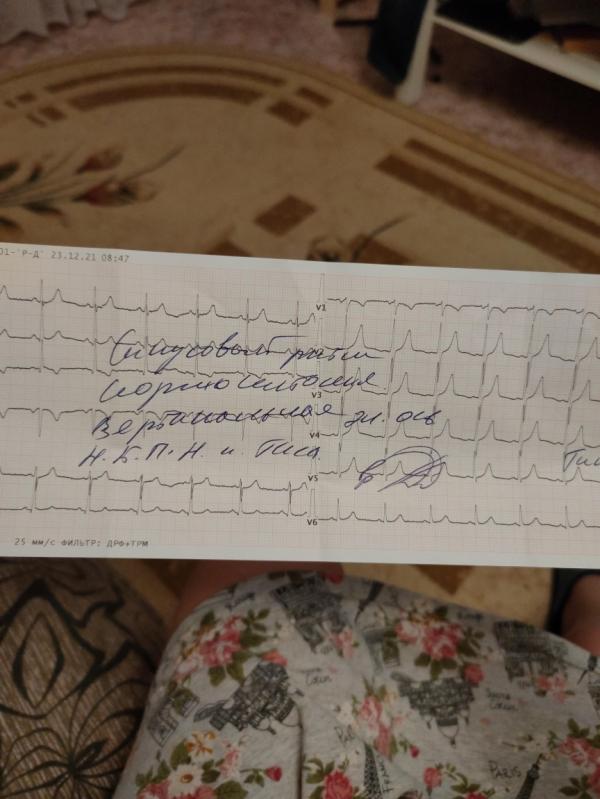 01-'Р-Д' 23.12.21 08:47
V1
Синусовый ритм
V3
нормосистолия
Вертикальная эл. ось
V4
Н.Б.П.Н. и. Гиса
V5
V6
25 мм/с ФИЛЬТР: ДРФ+ТРМ
PARIS
PARIS